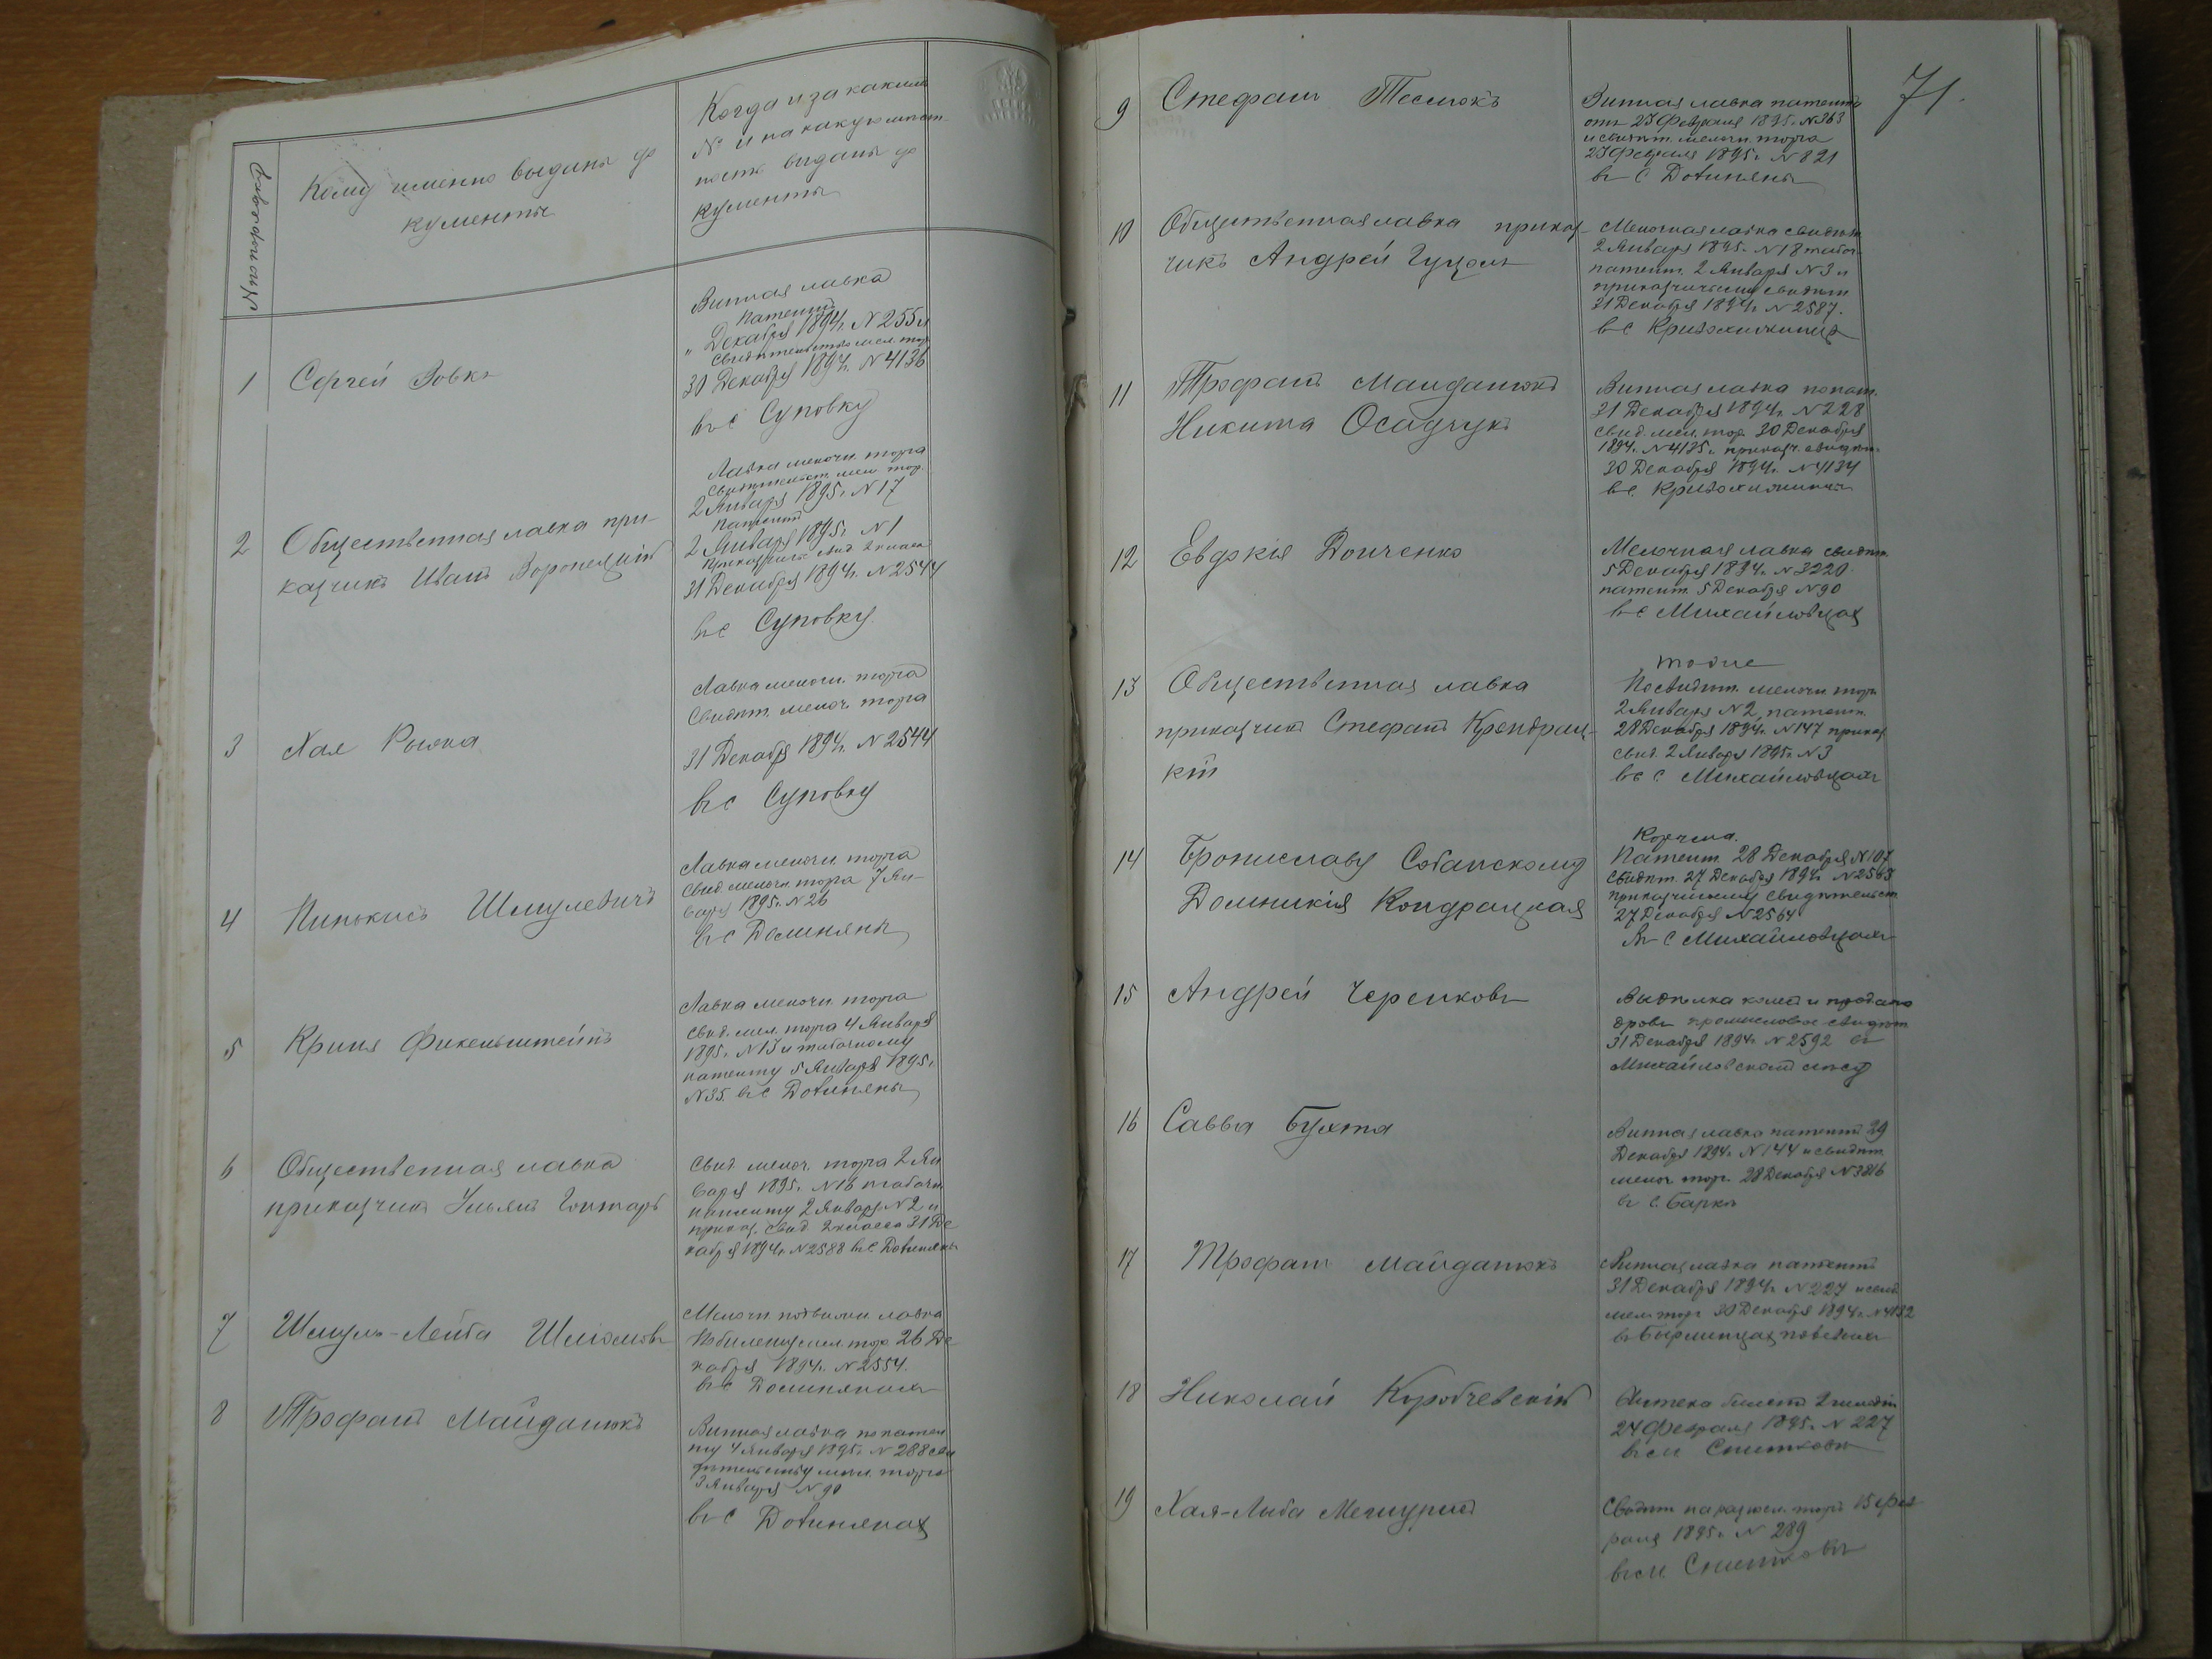 Кому именно выданы до
кументы
Когда и за какимъ
№ и на какую мѣст
ность выданы до
кументы
1
Сергей Вовкъ
Винная лавка
Патентъ
" Декабря 1894г. № 255 и
Свидѣтельство мел. тор
30 Декабря 1894г. № 4136
въ с Суповку
2
Общественная лавка при-
кащикъ Иванъ
Лавка мелочн. торга
Свидѣтельст. мел. тор.
2 Января 1895г. № 17
патентъ
2 Января 1895г. № 1
31 Декабря 1894г. № 2544
въ с Суповку.
3
Хая
Лавка мелочн. торга
Свидѣт. мелоч. торга
31 Декабря 1894г. № 2544
въ с Суповку
4
Пинькисъ Шмулевичъ
Лавка мелочн. торга
Свид. мелочн. торга 7 Ян-
варя 1895г. № 26
въ с Доминяны
5
Крина Фикельштейнъ
Лавка мелочн. торга
Свид. мел. торга 4 Января
1895г. № 13 и табачному
патенту 5 Января 1895г.
№ 35. въ с Довиняны
6
Общественная лавка
прикащикъ Ульянъ Гонтарь
Свид. мелоч. торга 2 Ян
варя 1895г. № 16 и табачн.
патенту 2 Января № 2 и
приказ. свид. 2 класса 31 Де
кабря 1894г. № 2588 въ с. Довиняны
7
Шмуль-Лейба Шліомовъ
Мелочн. лавка
мел. тор. 26 Де
кабря 1894г. № 2554.
въ с Доминянахъ
8
Трофимъ Майданюкъ
Винная лавка по патен
ту 4 Января 1895г. № 288 сви
дѣтельству мел. торга
3 Января № 90
въ с Довинянах
9
Стефанъ Теслюкъ
Винная лавка патентъ
отъ 23 Февраля 1895г. № 363
и свидѣт. мелочн. торга
23 Февраля 1895г. № 821
въ с Довиняны
71.
10
Общественная лавка приказ-
чикъ Андрей Гуцолъ
Мелочная лавка свидѣт
2 Января 1895г. № 18 табач.
патент. 2 Января № 3 и
31 Декабря 1894г. № 2587.
въ с
11
Трофимъ Майданюкъ
Никита Осадчукъ
Винная лавка по пат.
31 Декабря 1894г. № 228
Свид. мел. тор. 30 Декабря
1894. № 4135 и приказч. свидѣт.
30 Декабря 1894г. № 4134
въ с.
12
Евдокія Донченко
Мелочная лавка свидѣт.
5 Декабря 1894г. № 3220.
патент. 5 Декабря № 90
въ с Михайловцах
13
Общественная лавка
прикащикъ Стефанъ Кондрац-
кій
тоже
По свидѣт. мелочн. торг.
2 Января № 2, патент.
28 Декабря 1894г. № 147 приказ
свид. 2 Января 1895г. № 3
въ с Михайловцахъ
14
Брониславу Собанскому
Доминикія Кондрацкая
Корчма.
Патент. 28 Декабря № 107
Свидѣт. 27 Декабря 1894г. № 2563
27 Декабря № 2564
въ с Михайловцахъ
15
Андрей Черенковъ
Выдѣлка колесъ и продажа
дровъ промысловое свидѣт
31 Декабря 1894г. № 2592 въ
Михайловскомъ лѣсу
16
Савва Бухта
Винная лавка патентъ 29
Декабря 1894г. № 144 и свидѣт.
мелоч. тор. 28 Декабря № 3816
въ с. Баркъ
17
Трофимъ Майданюкъ
Винная лавка патентъ
31 Декабря 1894г. № 227 и свид
мел. торг 30 Декабря 1894г. № 4132
18
Николай Куробчевскій
Аптека билетъ 2 гильдіи
24 Февраля 1895г. № 227
въ м. Снитковъ
19
Хая-Либа
Свидѣт на торгъ 15 Фев
раля 1895г. № 289
въ м. Снитковъ